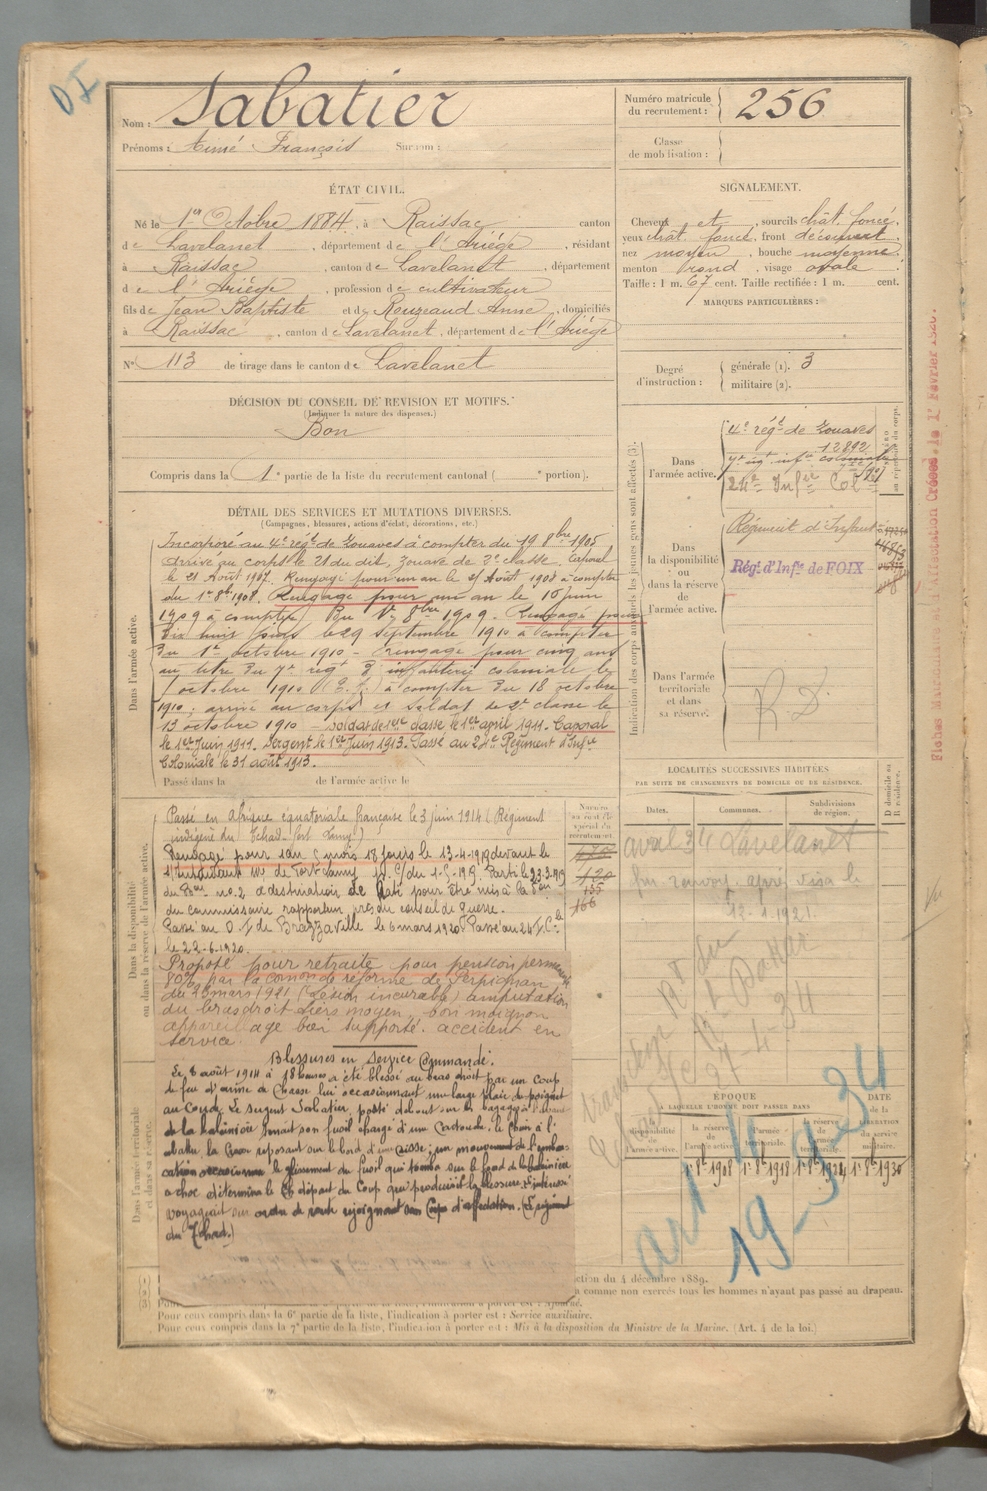 DI
Nom : Sabatier
Prénoms : Aimé François Surnom :
Numéro matricule du recrutement : 256
Classe de mobilisation :
ÉTAT CIVIL.
Né le 1er Octobre 1884, à Raissac canton
de Lavelanet, département de l'Ariège, résidant
à Raissac, canton de Lavelanet, département
de l'Ariège, profession de cultivateur
fils de Jean Baptiste et de Rouzeaud Anne, domiciliés
à Raissac, canton de Lavelanet, département de l'Ariège
N° 113 de tirage dans le canton de Lavelanet
SIGNALEMENT.
Cheveux et, sourcils chât. foncé,
yeux chât. foncé, front découvert
nez moyen, bouche moyenne
menton rond, visage ovale
Taille : 1 m. 67 cent. Taille rectifiée : 1 m. cent.
MARQUES PARTICULIÈRES :
Degré d'instruction : générale (1). 3
militaire (2).
DÉCISION DU CONSEIL DE RÉVISION ET MOTIFS.
(Indiquer la nature des dispenses.)
Bon
Compris dans la 1e partie de la liste du recrutement cantonal ( e portion).
DÉTAIL DES SERVICES ET MUTATIONS DIVERSES.
(Campagnes, blessures, actions d'éclat, décorations, etc.)
Dans l'armée active.
Incorporé au 4e régt de Zouaves à compter du 19 8bre 1905
Arrivé au corps le 21 du dit, Zouave de 2e classe. Caporal
le 21 Août 1907. Rengagé pour un an le 21 Août 1908 à compter
du 1er 8bre 1908. Rengagé pour un an le 16 juin
1909 à compter du 1er 8bre 1909. Rengagé pour
dix huit jours le 29 septembre 1910 à compter
du 1er octobre 1910 - rengagé pour cinq ans
au titre du 7e régt d'infanterie coloniale le
1 octobre 1910 à compter du 18 octobre
1910; arrivé au corps et soldat de 2e classe le
13 octobre 1910 - soldat de 1ere classe le 1er avril 1911. Caporal
le 1er Juin 1911. Sergent le 1er Juin 1913. Passé au 24e Régiment d'Infie
Coloniale le 31 août 1913.
Passé dans la de l'armée active le
Dans la disponibilité ou dans la réserve de l'armée active.
Passé en Afrique équatoriale française le 3 juin 1914 (Régiment
indigène du Tchad - Fort Lamy)
Rengagé pour 1 an 5 mois 18 jours le 13-4-1919 devant le
du commissaire rapporteur près du conseil de guerre.
Passé au D.I. de Brazzaville le 6 mars 1920. Passé au 24 I.Cle
le 22-6-1920
Proposé pour retraite pour pension permanente
80% par la comon de réforme de Perpignan
du 23 mars 1921 (Lésion incurable) amputation
du bras droit tiers moyen, bon moignon
appareillage bien supporté. accident en
service.
Blessures en Service Commandé.
Le 8 août 1914 à 18 heures a été blessé au bras droit par un coup
de feu d'arme de chasse lui occasionnant une large plaie du poignet
au coude. Le sergent Sabatier, posté debout sur les bagages à l'avant
de la baleinière tenait son fusil chargé d'une cartouche, le chien à l'
abattu, la crosse reposant sur le bord d'une caisse; un mouvement de l'embar-
cation occasionna le glissement du fusil qui tomba sur le fond de la baleinière
voyageait sur ordre de route rejoignant son Corps d'affectation. (Le régiment
du Tchad.)
Dans l'armée territoriale et dans sa réserve.
Indication des corps auxquels les jeunes gens sont affectés (3).
Dans l'armée active.
4e régt de Zouaves
12892
7e régt infie coloniale
24e Infie Cle
Dans la disponibilité ou dans la réserve de l'armée active.
Régiment d'Infant
Régt d'Infie de FOIX
Dans l'armée territoriale et dans sa réserve.
R.D.
Fiches Matricules et d'Affectation Créées le 1er Février 1926.
LOCALITÉS SUCCESSIVES HABITÉES
PAR SUITE DE CHANGEMENTS DE DOMICILE OU DE RÉSIDENCE.
Dates. Communes. Subdivisions de région. D domicile ou R résidence.
Lavelanet
13-1-1921
ÉPOQUE
À LAQUELLE L'HOMME DOIT PASSER DANS
DATE de la LIBÉRATION du service militaire.
1er 8bre 1908 1er 8bre 1918 1er 8bre 1924 1er 8bre 1930
art 4
19-9-34
ction du 4 décembre 1889.
comme non exercés tous les hommes n'ayant pas passé au drapeau.
Pour ceux compris dans la 6e partie de la liste, l'indication à porter est : Service auxiliaire.
Pour ceux compris dans la 7e partie de la liste, l'indication à porter est : Mis à la disposition du Ministre de la Marine. (Art. 4 de la loi.)